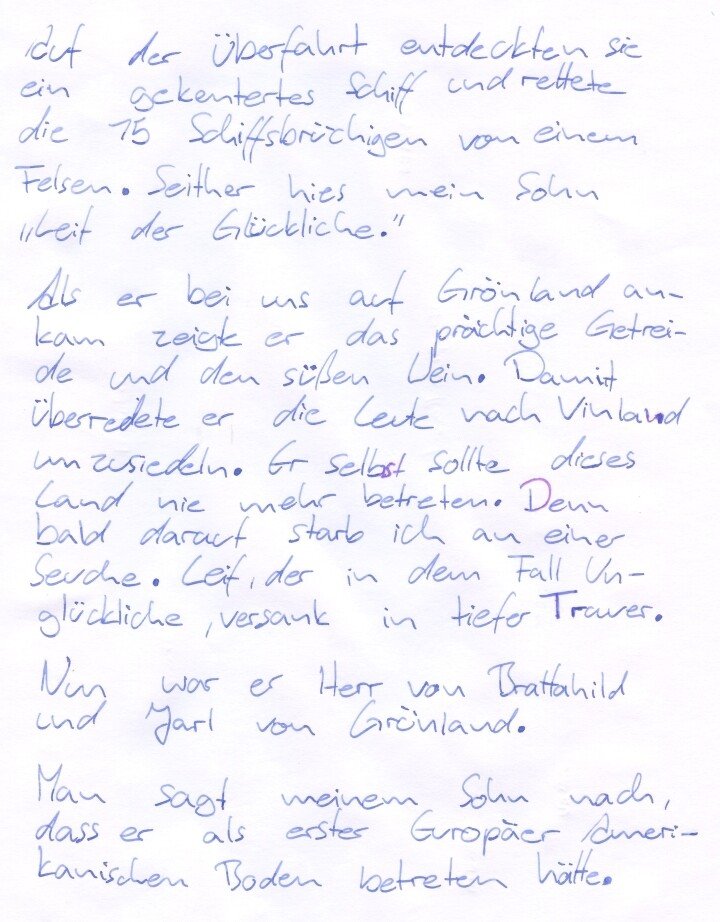 Auf der Überfahrt entdeckten sie
ein gekentertes Schiff und rettete
die 15 Schiffsbrüchigen von einem
Felsen. Seither hies mein Sohn
"Leif der Glückliche."
Als er bei uns auf Grönland an-
kam zeigte er das prächtige Getrei-
de und den süßen Wein. Damit
überredete er die Leute nach Vinland
umzusiedeln. Er selbst sollte dieses
Land nie mehr betreten. Denn
bald darauf starb ich an einer
Seuche. Leif, der in dem Fall Un-
glückliche, versank in tiefer Trauer.
Nun war er Herr von Brattahild
und Jarl von Grönland.
Man sagt meinem Sohn nach,
dass er als erster Europäer Ameri-
kanischen Boden betreten hätte.